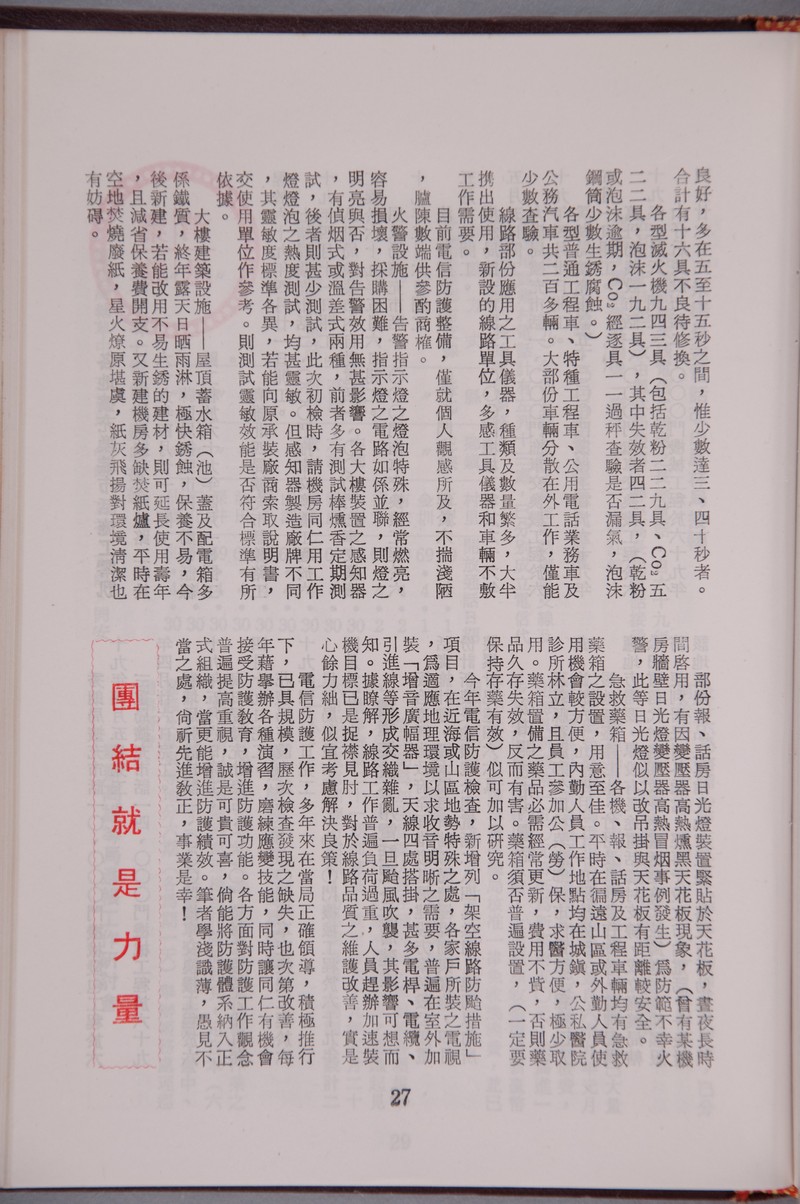 良好，多在五至十五秒之間，惟少數達三、四十秒者。
合計有十六具不良待修換。
各型滅火機九四三具（包括乾粉二二九具、Co₂五
二二具，泡沫一九二具），其中失效者四二具，（乾粉
或泡沫逾期，Co₂經逐具一一過秤查驗是否漏氣，泡沫
鋼筒少數生銹腐蝕。）
各型普通工程車、特種工程車、公用電話業務車及
公務汽車共二百多輛。大部份車輛分散在外工作，僅能
少數查驗。
線路部份應用之工具儀器，種類及數量繁多，大半
携出使用，新設的線路單位，多感工具儀器和車輛不敷
工作需要。
目前電信防護整備，僅就個人觀感所及，不揣淺陋
，臚陳數端供參酌商榷。
火警設施——告警指示燈之燈泡特殊，經常燃亮，
容易損壞，採購困難，指示燈之電路如係並聯，則燈之
明亮與否，對告警效用無甚影響。各大樓裝置之感知器
，有偵烟式或溫差式兩種，前者多有測試棒燻香定期測
試，後者則甚少測試，此次初檢時，請機房同仁用工作
燈燈泡之熱度測試，均甚靈敏。但感知器製造廠牌不同
，其靈敏度標準各異，若能向原承裝廠商索取說明書，
交使用單位作參考。則測試靈敏效能是否符合標準有所
依據。
大樓建築設施——屋頂蓄水箱（池）蓋及配電箱多
係鐵質，終年露天日晒雨淋，極快銹蝕，保養不易，今
後新建，若能改用不易生銹的建材，則可延長使用壽年
，且減省保養費開支。又新建機房多缺焚紙爐，平時在
空地焚燒廢紙，星火燎原堪虞，紙灰飛揚對環境清潔也
有妨碍。
部份報、話房日光燈裝置緊貼於天花板，晝夜長時
間啓用，有因變壓器高熱燻黑天花板現象，（曾有某機
房牆壁日光燈變壓器高熱冒烟事例發生）爲防範不幸火
警，此等日光燈似以改吊掛與天花板有距離較安全。
急救藥箱——各機、報、話房及工程車輛均有急救
藥箱之設置，用意至佳。平時在徧遠山區或外勤人員使
用機會較方便，內勤人員工作地點均在城鎭，公私醫院
診所林立，且員工參加公（勞）保，求醫方便，極少取
用。藥箱置備之藥品必需經常更新，費用不貲，否則藥
品久存失效，反而有害。藥箱須否普遍設置，（一定要
保持存藥有效）似可加以研究。
今年電信防護檢查，新增列「架空線路防颱措施」
項目，在近海或山區地勢特殊之處，各家戶所裝之電視
，爲適應地理環境以求收音明晰之需要，普遍在室外加
裝「增音廣幅器」，天線四處搭掛，甚多電桿、電纜、
引進線等形成交織雜亂，一旦颱風吹襲，其影響可想而
知。據瞭解，線路工作普遍負荷過重，人員趕辦加速裝
機目標已是捉襟見肘，對於線路品質之維護改善，實是
心餘力絀，似宜考慮解決良策！
電信防護工作，多年來在當局正確領導，積極推行
下，已具規模，歷次檢查發現之缺失，也次第改善，每
年藉擧辦各種演習，磨練應變技能，同時讓同仁有機會
接受防護教育，增進防護功能。各方面對防護工作觀念
普遍提高重視，誠是可貴可喜，倘能將防護體系納入正
式組織，當更能增進防護績效。筆者學淺識薄，愚見不
當之處，尙祈先進教正，事業是幸！
團結就是力量
27